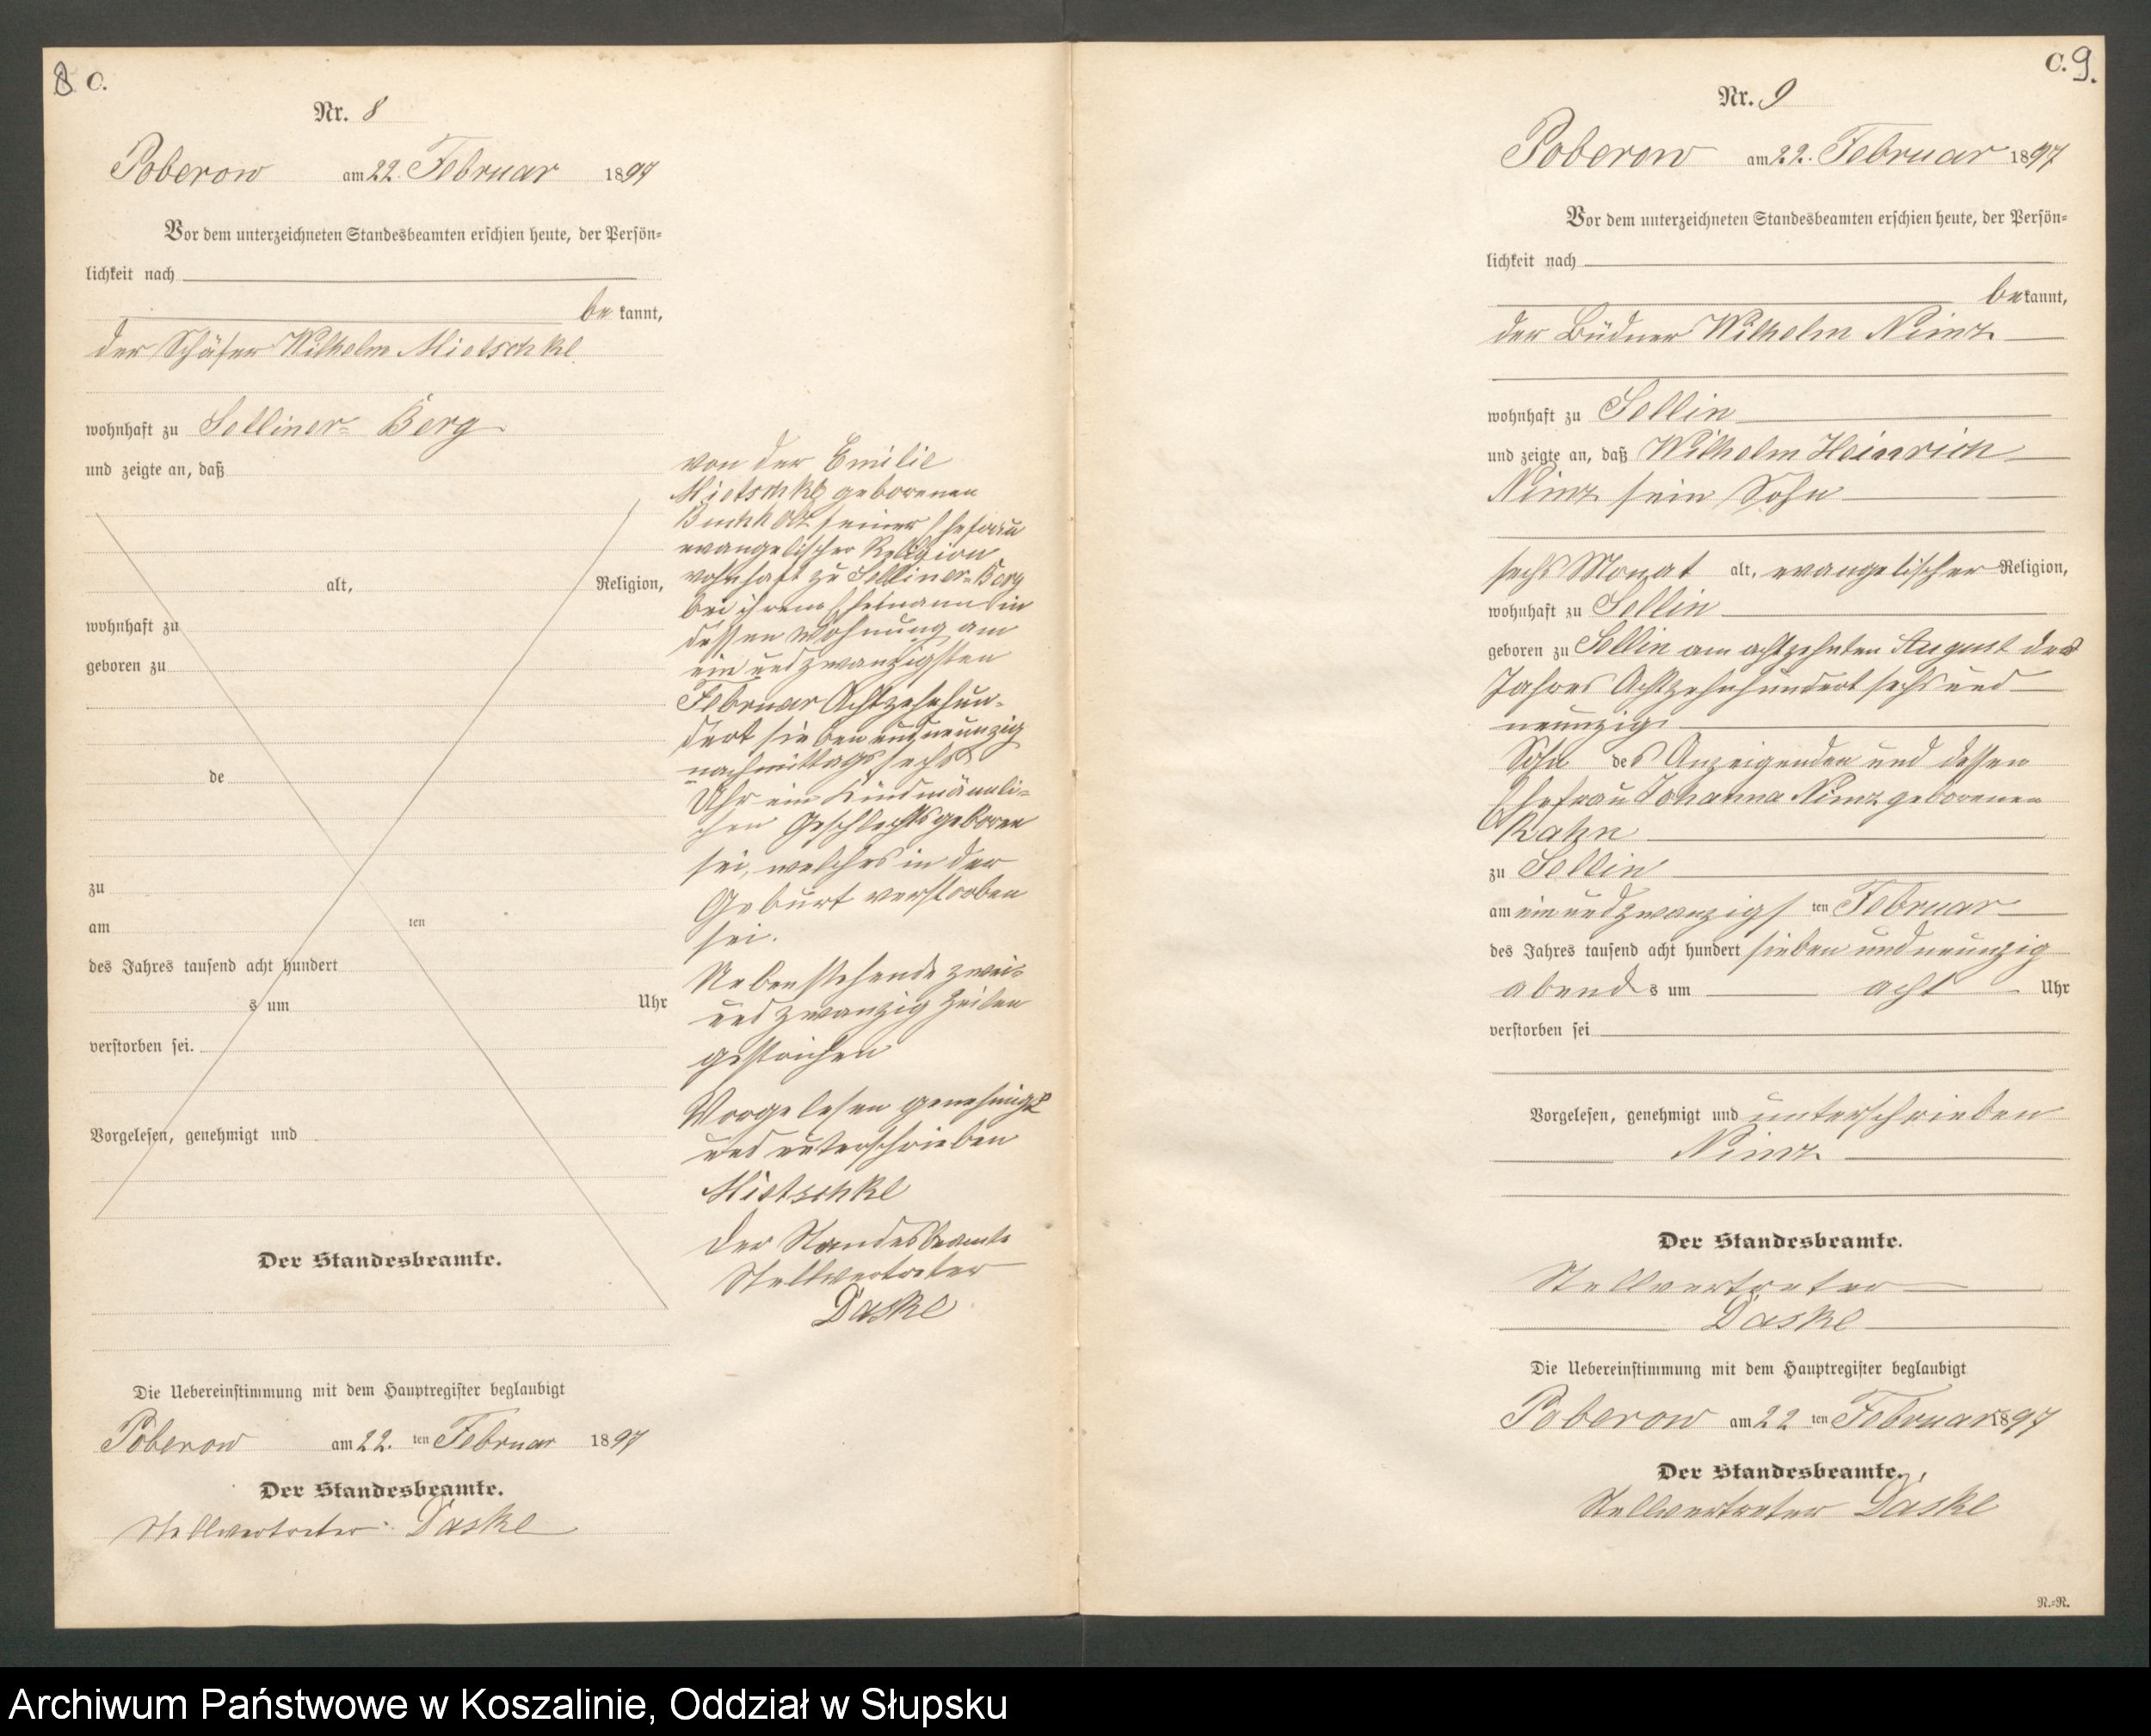 8 C.
Nr. 8
Poberow am 22. Februar 1897
Vor dem unterzeichneten Standesbeamten erschien heute, der Persön-
lichkeit nach
be kannt,
der Schäfer Wilhelm Mietschke
wohnhaft zu Selliner-Berg
und zeigte an, daß
alt, Religion,
wohnhaft zu
geboren zu
de
zu
am ten
des Jahres tausend acht hundert
s um Uhr
verstorben sei.
Vorgelesen, genehmigt und
Der Standesbeamte.
Die Uebereinstimmung mit dem Hauptregister beglaubigt
Poberow am 22. ten Februar 1897
Der Standesbeamte.
Stellvertreter Daske
von der Emilie
Mietschke geborenen
Buchholz seiner Ehefrau
evangelischer Religion
wohnhaft zu Selliner-Berg
bei ihrem Ehemann in
dessen Wohnung am
ein und zwanzigsten
Februar Achtzehnhun-
dert sieben und neunzig
nachmittags sechs
Uhr ein Kind männli-
chen Geschlechts geboren
sei, welches in der
Geburt verstorben
sei.
Nebenstehende zwei-
und zwanzig Zeilen
gestrichen
Vorgelesen genehmigt
und unterschrieben
Mietschke
Der Standesbeamte
Stellvertreter
Daske
C. 9.
Nr. 9
Poberow am 22. Februar 1897
Vor dem unterzeichneten Standesbeamten erschien heute, der Persön-
lichkeit nach
bekannt,
der Büdner Wilhelm Nimz
wohnhaft zu Sellin
und zeigte an, daß Wilhelm Heinrich
Nimz sein Sohn
sechs Monat alt, evangelischer Religion,
wohnhaft zu Sellin
geboren zu Sellin am achtzehnten August des
Jahres Achtzehnhundert sechs und
neunzig
Sohn des Anzeigenden und dessen
Ehefrau Johanna Nimz geborenen
Rahn
zu Sellin
am ein und zwanzigs ten Februar
des Jahres tausend acht hundert sieben und neunzig
abends um acht Uhr
verstorben sei
Vorgelesen, genehmigt und unterschrieben
Nimz
Der Standesbeamte.
Stellvertreter
Daske
Die Uebereinstimmung mit dem Hauptregister beglaubigt
Poberow am 22 ten Februar 1897
Der Standesbeamte.
Stellvertreter Daske
N.=N.
Archiwum Państwowe w Koszalinie, Oddział w Słupsku